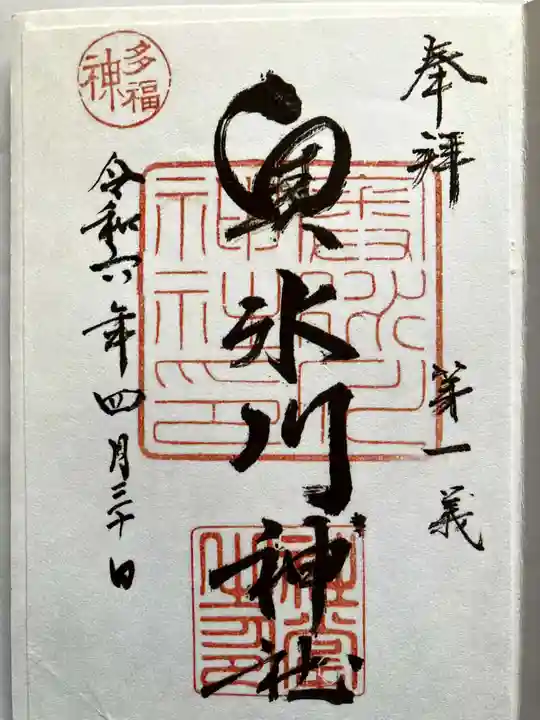 奉拝
第一義
奥氷川神社
多福神
令和六年四月三十日